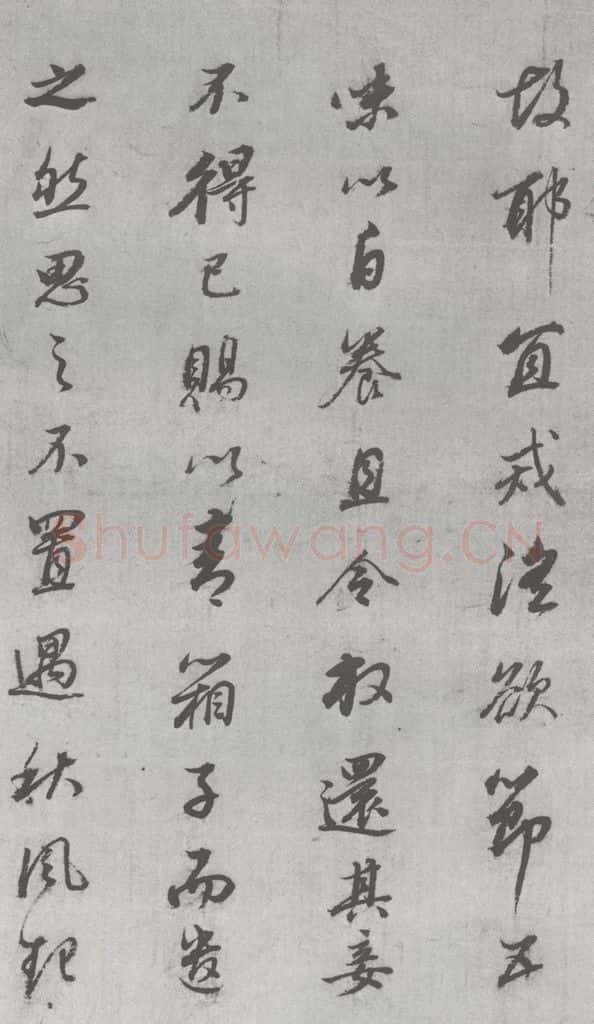 故耶宜戒淫欲節五
味以自養且令放還其妾
不得已賜以青箱子而遣
之然思之不置遇秋風起
Shufawang.CN